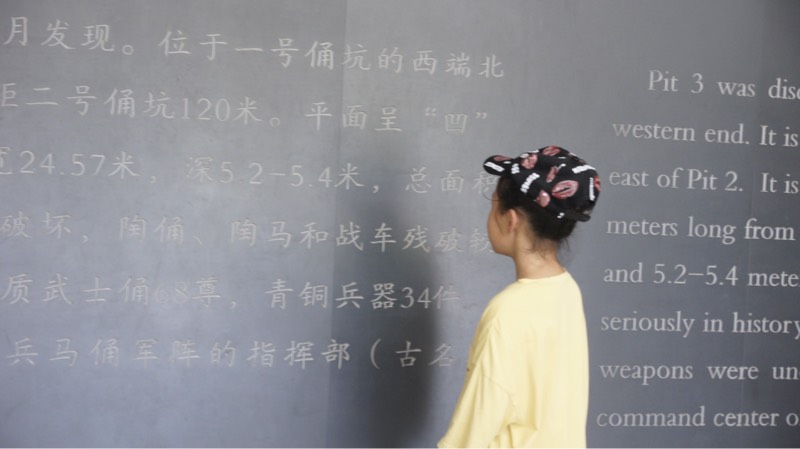 月发现。位于一号俑坑的西端北
距二号俑坑120米。平面呈“凹”
宽24.57米，深5.2-5.4米，总面积
破坏，陶俑、陶马和战车残破较
质武士俑68尊，青铜兵器34件
兵马俑军阵的指挥部（古名
Pit 3 was disc
western end. It is
east of Pit 2. It is
meters long from
and 5.2-5.4 mete
seriously in history
weapons were un
command center o